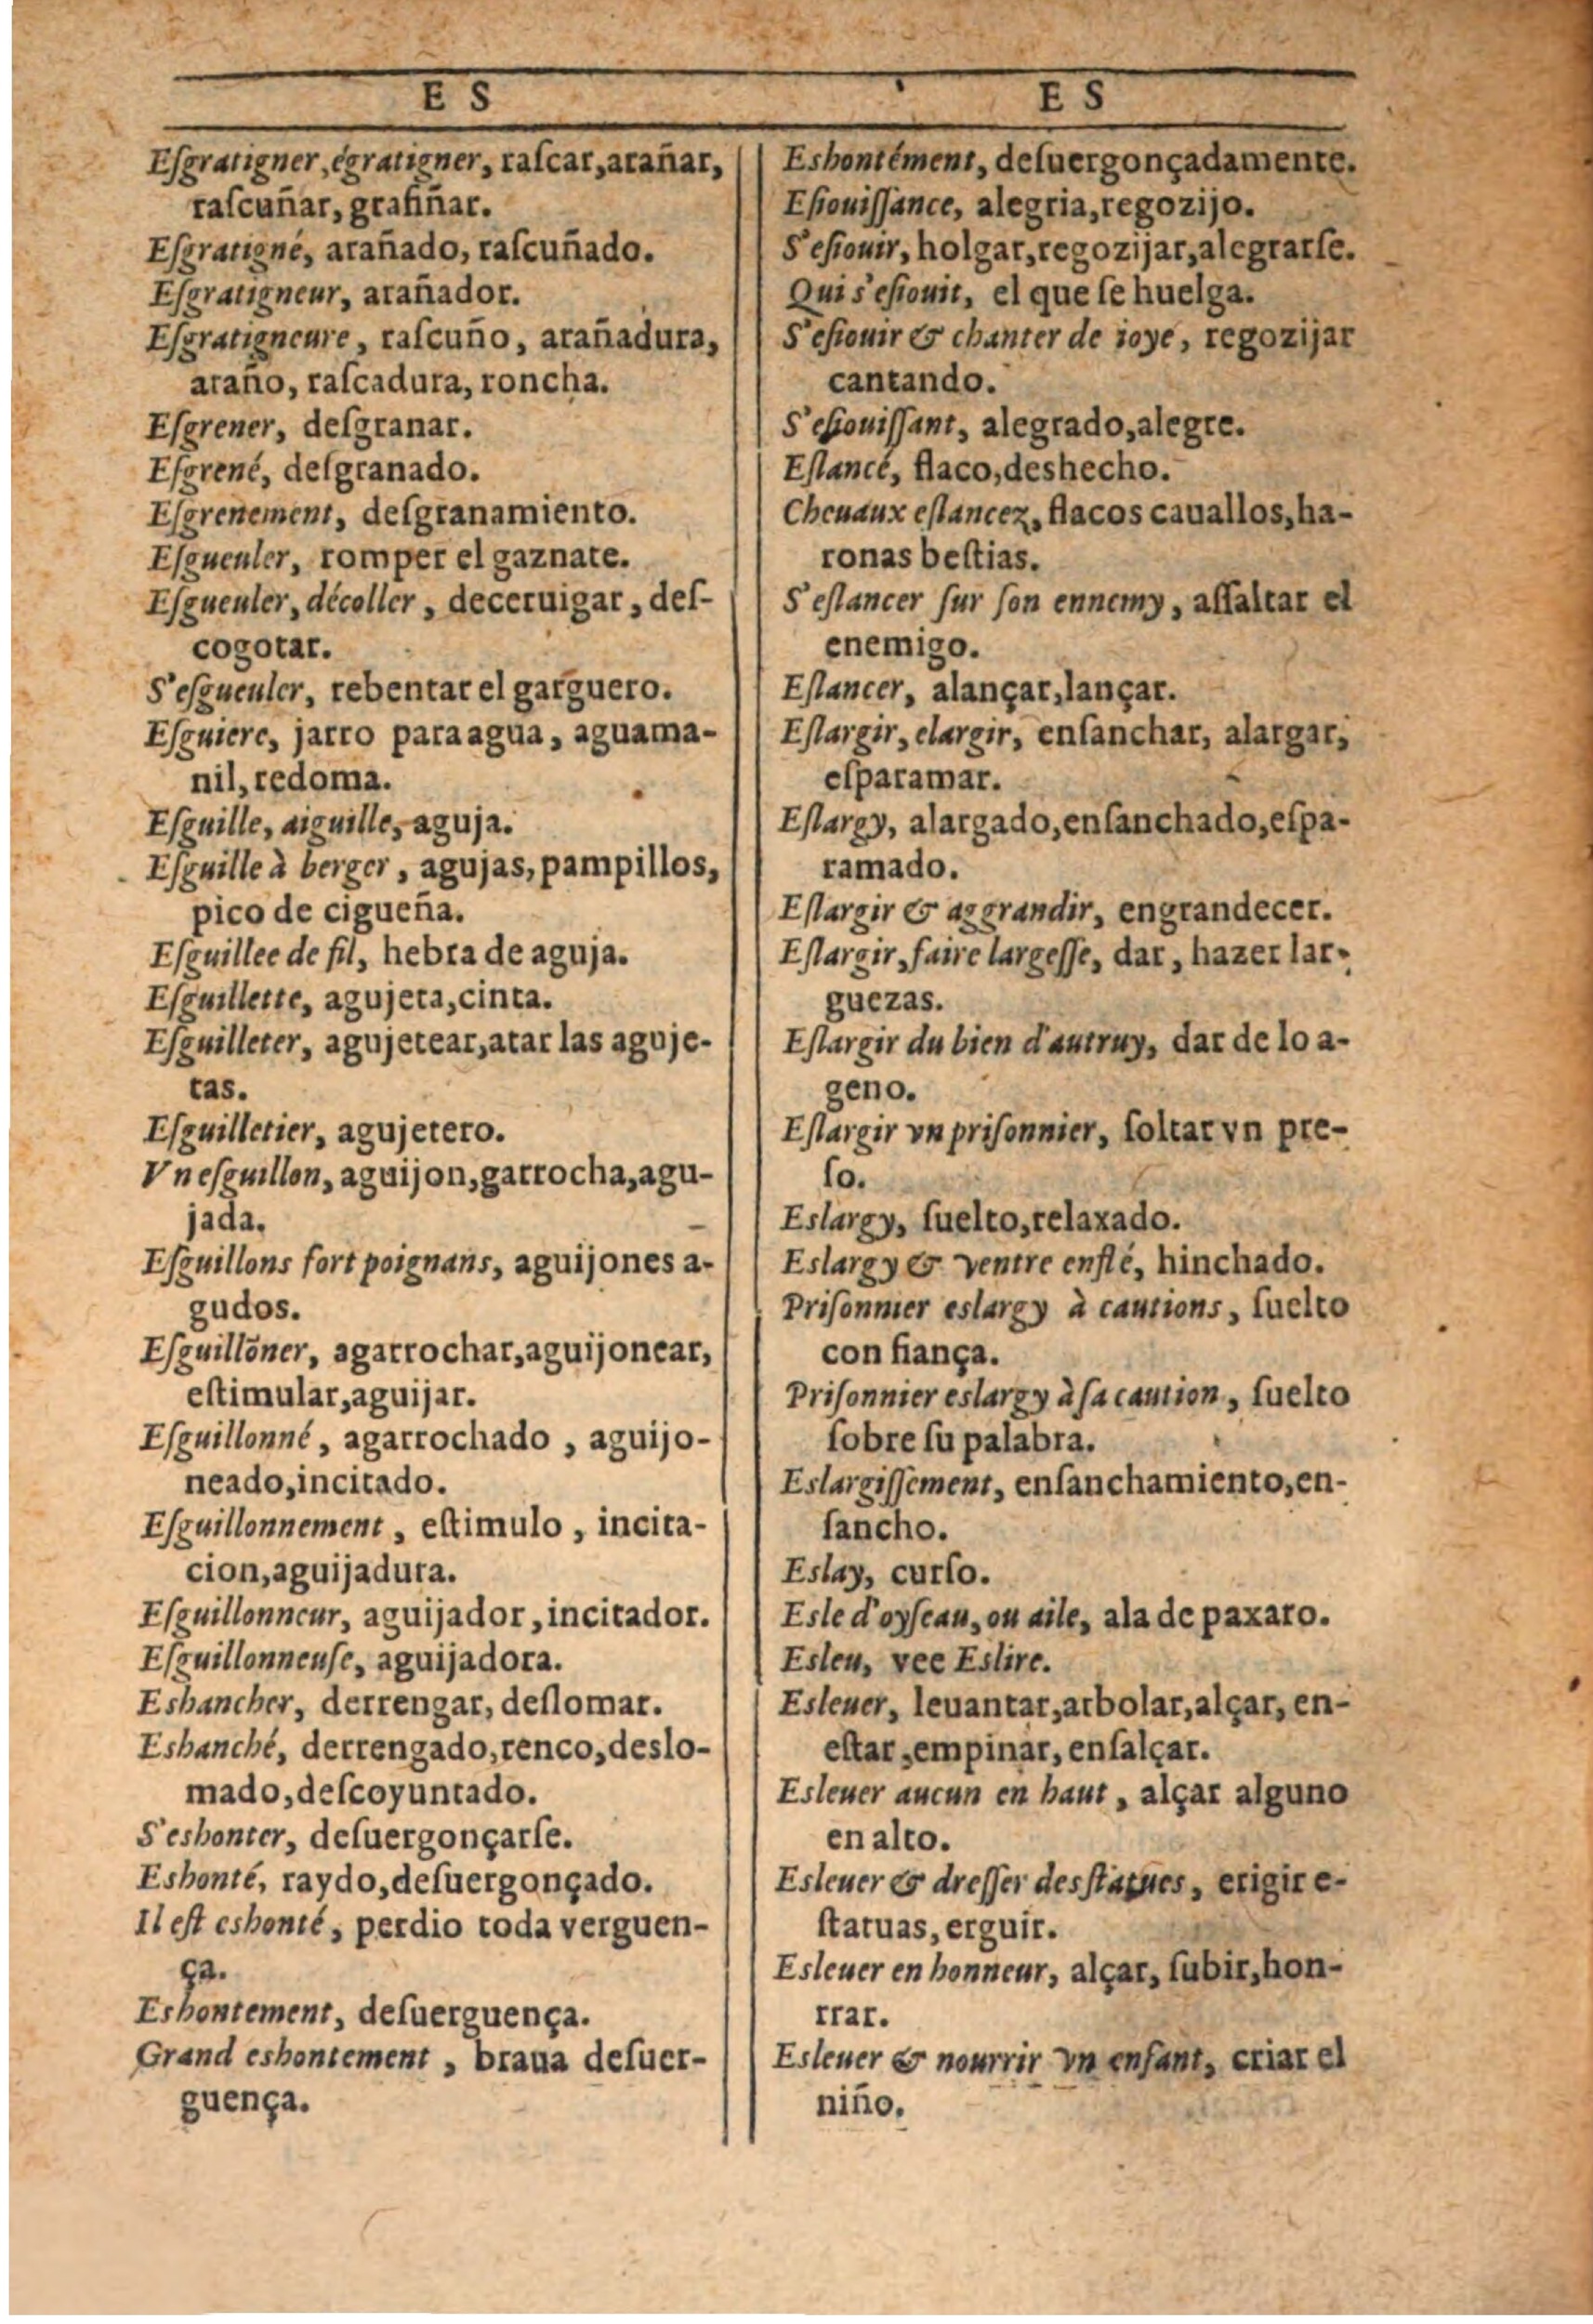 E S
Eſgratigner, égratigner, raſcar, arañar,
raſcuñar, grafiñar.
Eſgratigné, arañado, raſcuñado.
Eſgratigneur, arañador.
Eſgratigneure, raſcuño, arañadura,
araño, raſcadura, roncha.
Eſgrener, deſgranar.
Eſgrené, deſgranado.
Eſgrenement, deſgranamiento.
Eſgueuler, romper el gaznate.
Eſgueuler, décoller, deceruigar, deſ-
cogotar.
S'eſgueuler, rebentar el garguero.
Eſguiere, jarro para agua, aguama-
nil, redoma.
Eſguille, aiguille, aguja.
Eſguille à berger, agujas, pampillos,
pico de cigueña.
Eſguillee de fil, hebra de aguja.
Eſguillette, agujeta, cinta.
Eſguilleter, agujetear, atar las aguje-
tas.
Eſguilletier, agujetero.
Vn eſguillon, aguijon, garrocha, agu-
jada.
Eſguillons fort poignans, aguijones a-
gudos.
Eſguillõner, agarrochar, aguijonear,
eſtimular, aguijar.
Eſguillonné, agarrochado, aguijo-
neado, incitado.
Eſguillonnement, eſtimulo, incita-
cion, aguijadura.
Eſguillonneur, aguijador, incitador.
Eſguillonneuſe, aguijadora.
Eshancher, derrengar, deſlomar.
Eshanché, derrengado, renco, deslo-
mado, deſcoyuntado.
S'eshonter, deſuergonçarſe.
Eshonté, raydo, deſuergonçado.
Il eſt eshonté, perdio toda verguen-
ça.
Eshontement, deſuerguença.
Grand eshontement, braua deſuer-
guença.
E S
Eshontément, deſuergonçadamente.
Eſiouiſſance, alegria, regozijo.
S'eſiouir, holgar, regozijar, alegrarſe.
Qui s'eſiouit, el que ſe huelga.
S'eſiouir & chanter de ioye, regozijar
cantando.
S'eſiouiſſant, alegrado, alegre.
Eſlancé, flaco, deshecho.
Cheuaux eſlancez, flacos cauallos, ha-
ronas beſtias.
S'eſlancer ſur ſon ennemy, aſſaltar el
enemigo.
Eſlancer, alançar, lançar.
Eſlargir, elargir, enſanchar, alargar,
eſparamar.
Eſlargy, alargado, enſanchado, eſpa-
ramado.
Eſlargir & aggrandir, engrandecer.
Eſlargir, faire largeſſe, dar, hazer lar-
guezas.
Eſlargir du bien d'autruy, dar de lo a-
geno.
Eſlargir vn priſonnier, ſoltar vn pre-
ſo.
Eslargy, ſuelto, relaxado.
Eslargy & ventre enflé, hinchado.
Priſonnier eslargy à cautions, ſuelto
con fiança.
Priſonnier eslargy à ſa caution, ſuelto
ſobre ſu palabra.
Eslargiſſement, enſanchamiento, en-
ſancho.
Eslay, curſo.
Esle d'oyſeau, ou aile, ala de paxaro.
Esleu, vee Eslire.
Esleuer, leuantar, arbolar, alçar, en-
eſtar, empinar, enſalçar.
Esleuer aucun en haut, alçar alguno
en alto.
Esleuer & dreſſer des ſtatues, erigir e-
ſtatuas, erguir.
Esleuer en honneur, alçar, ſubir, hon-
rrar.
Esleuer & nourrir vn enfant, criar el
niño.